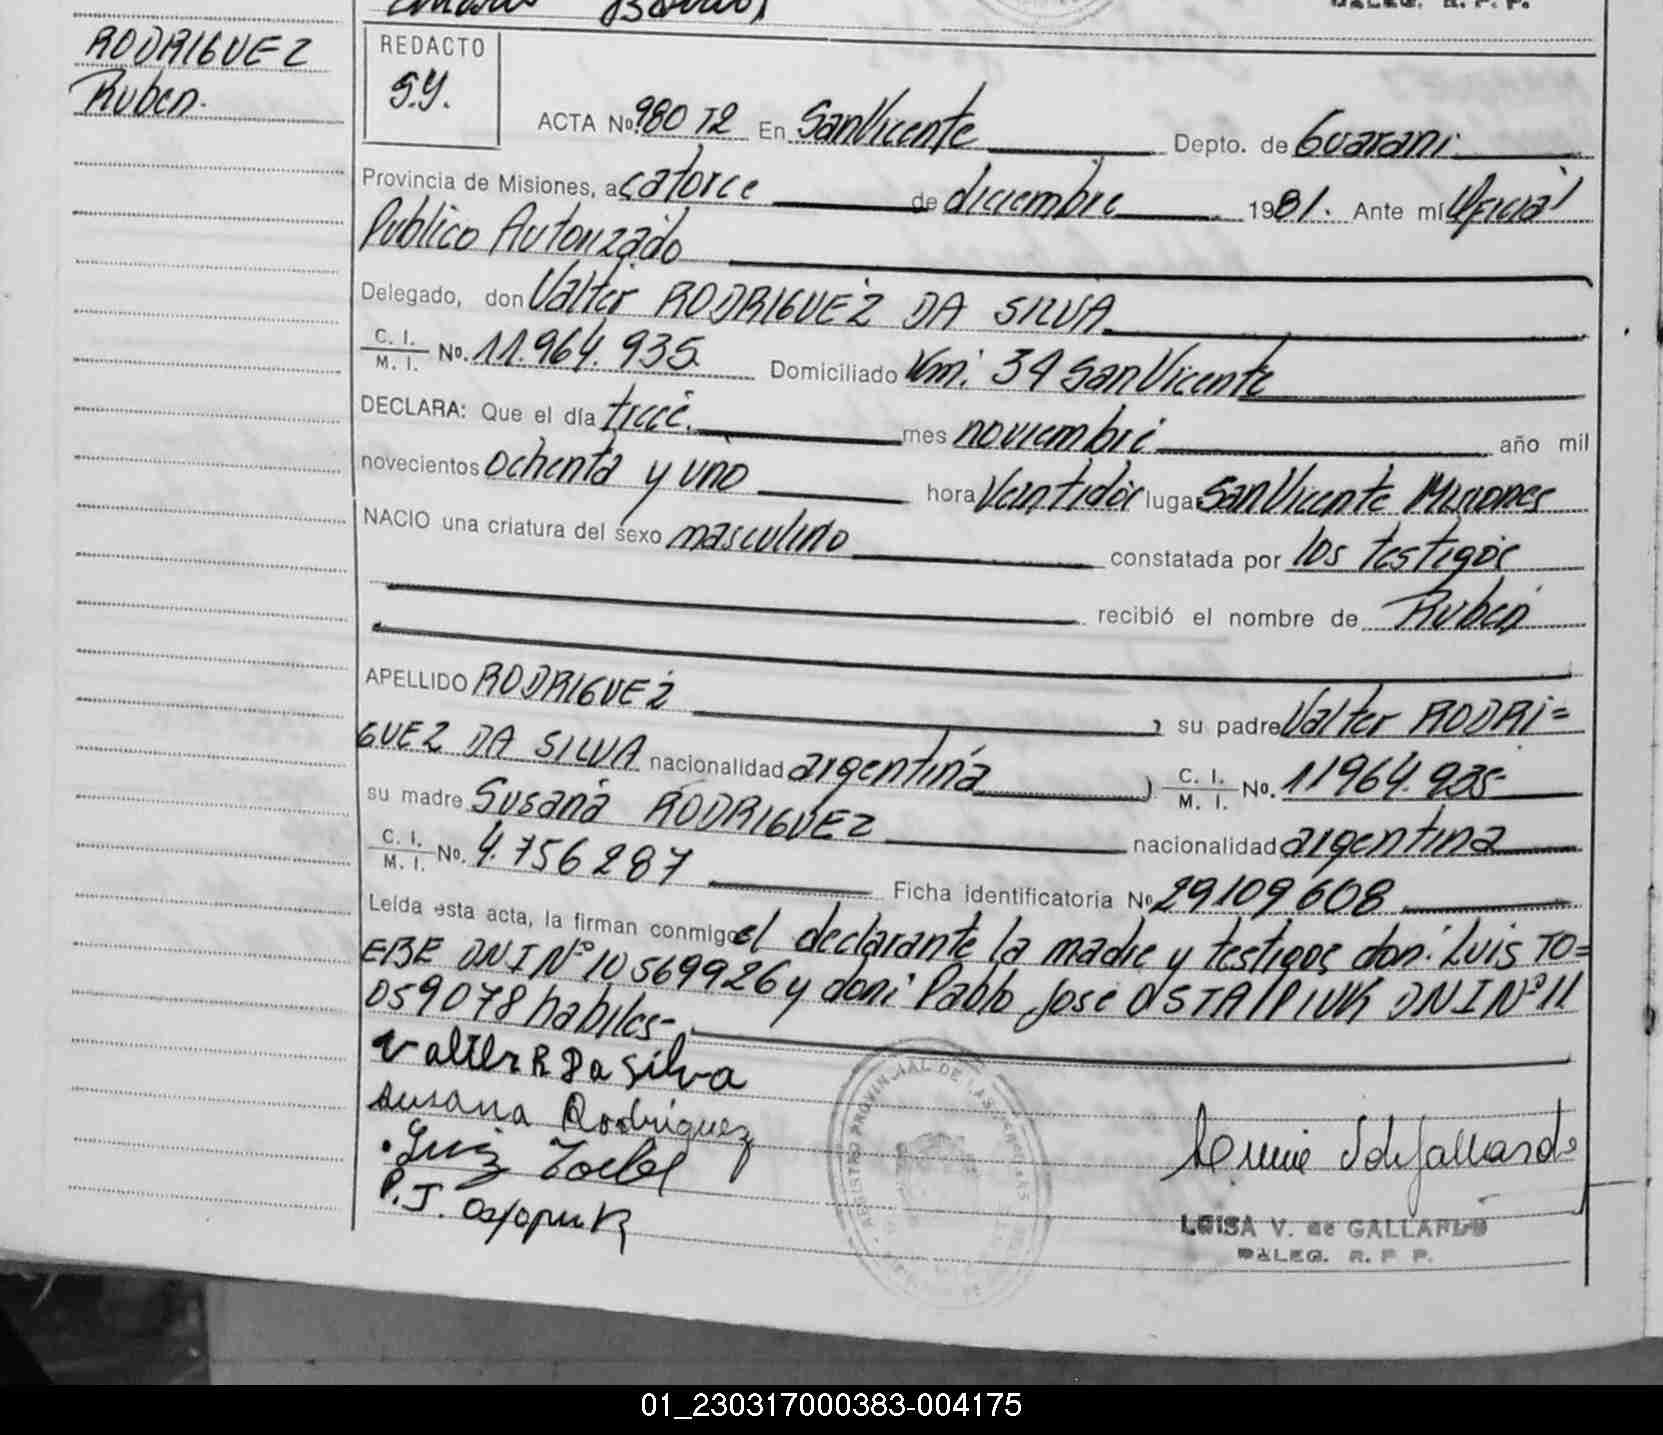 DALEG. R. P. P.
RODRIGUEZ
Ruben.
REDACTO
S.Y.
ACTA No. 980 T2 En San Vicente Depto. de Guarani
Provincia de Misiones, a catorce de diciembre 1981. Ante mí Oficial
Publico Autorizado
Delegado, don Valter RODRIGUEZ DA SILVA
C. I.
M. I. No. 11.964.935. Domiciliado Km. 34 San Vicente
DECLARA: Que el día trece. mes noviembre año mil
novecientos ochenta y uno hora Veintidos lugar San Vicente Misiones
NACIO una criatura del sexo masculino constatada por los testigos
recibió el nombre de Ruben
APELLIDO RODRIGUEZ , su padre Valter RODRI=
GUEZ DA SILVA nacionalidad argentina ) C. I.
M. I. No. 11964.935-
su madre Susana RODRIGUEZ nacionalidad argentina
C. I.
M. I. No. 4.756287 Ficha identificatoria No 29109608
Leída esta acta, la firman conmigo el declarante la madre y testigos don: Luis TO=
EBE DNI Nº 10569926 y don: Pablo José OSTAPIUK DNI Nº 11
059078 habiles-
Valter R Da Silva
Susana Rodriguez
Luis Toebe
P. J. Ostapiuk
REGISTRO PROVINCIAL DE LAS PERSONAS
LUISA V. de GALLARDO
DALEG. R. P P.
01_230317000383-004175